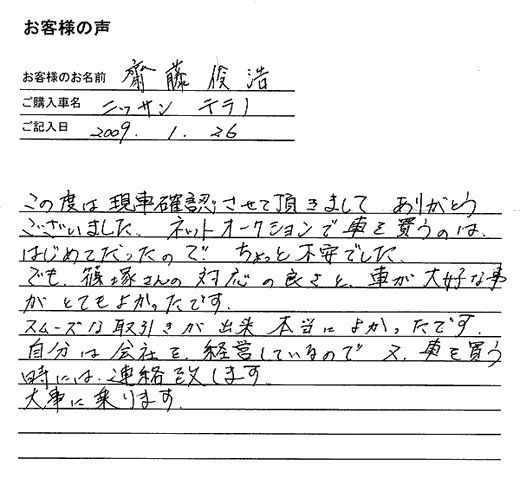 お客様の声
お客様のお名前 齋藤俊浩
ご購入車名 ニッサン テラノ
ご記入日 2009. 1. 26
この度は現車確認させて頂きまして ありがとう
ございました。ネットオークションで車を買うのは、
はじめてだったので ちょっと不安でした。
でも、篠塚さんの対応の良さと、車が大好な事
が とてもよかったです。
スムーズな取引きが出来 本当に よかったです。
自分は会社を、経営しているので 又、車を買う
時には、連絡致します。
大事に乗ります。